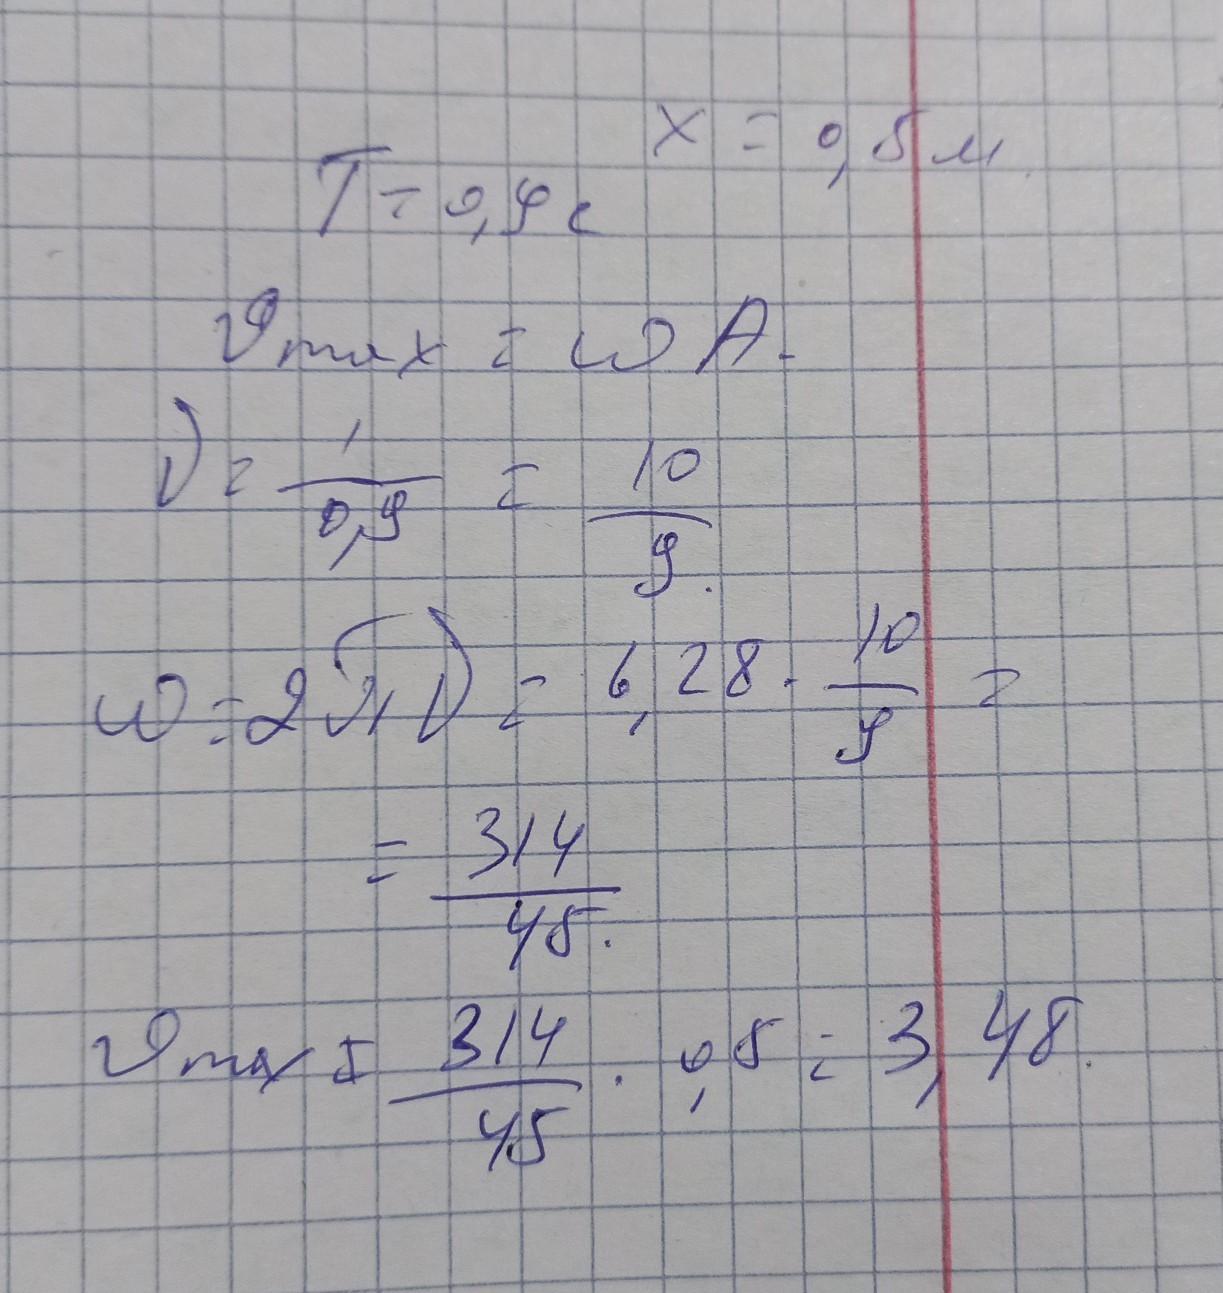 x = 0,5 м
T = 0,9 с
υmax = ω A.
ν = 1/0,9 = 10/9.
ω = 2πν = 6,28 · 10/9 =
= 314/45.
υmax = 314/45 · 0,5 = 3,48.